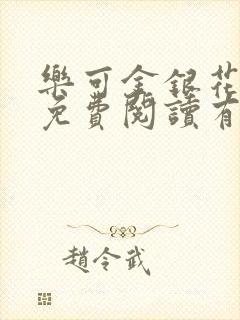 樂可金銀花
免費閱讀有
趙令武